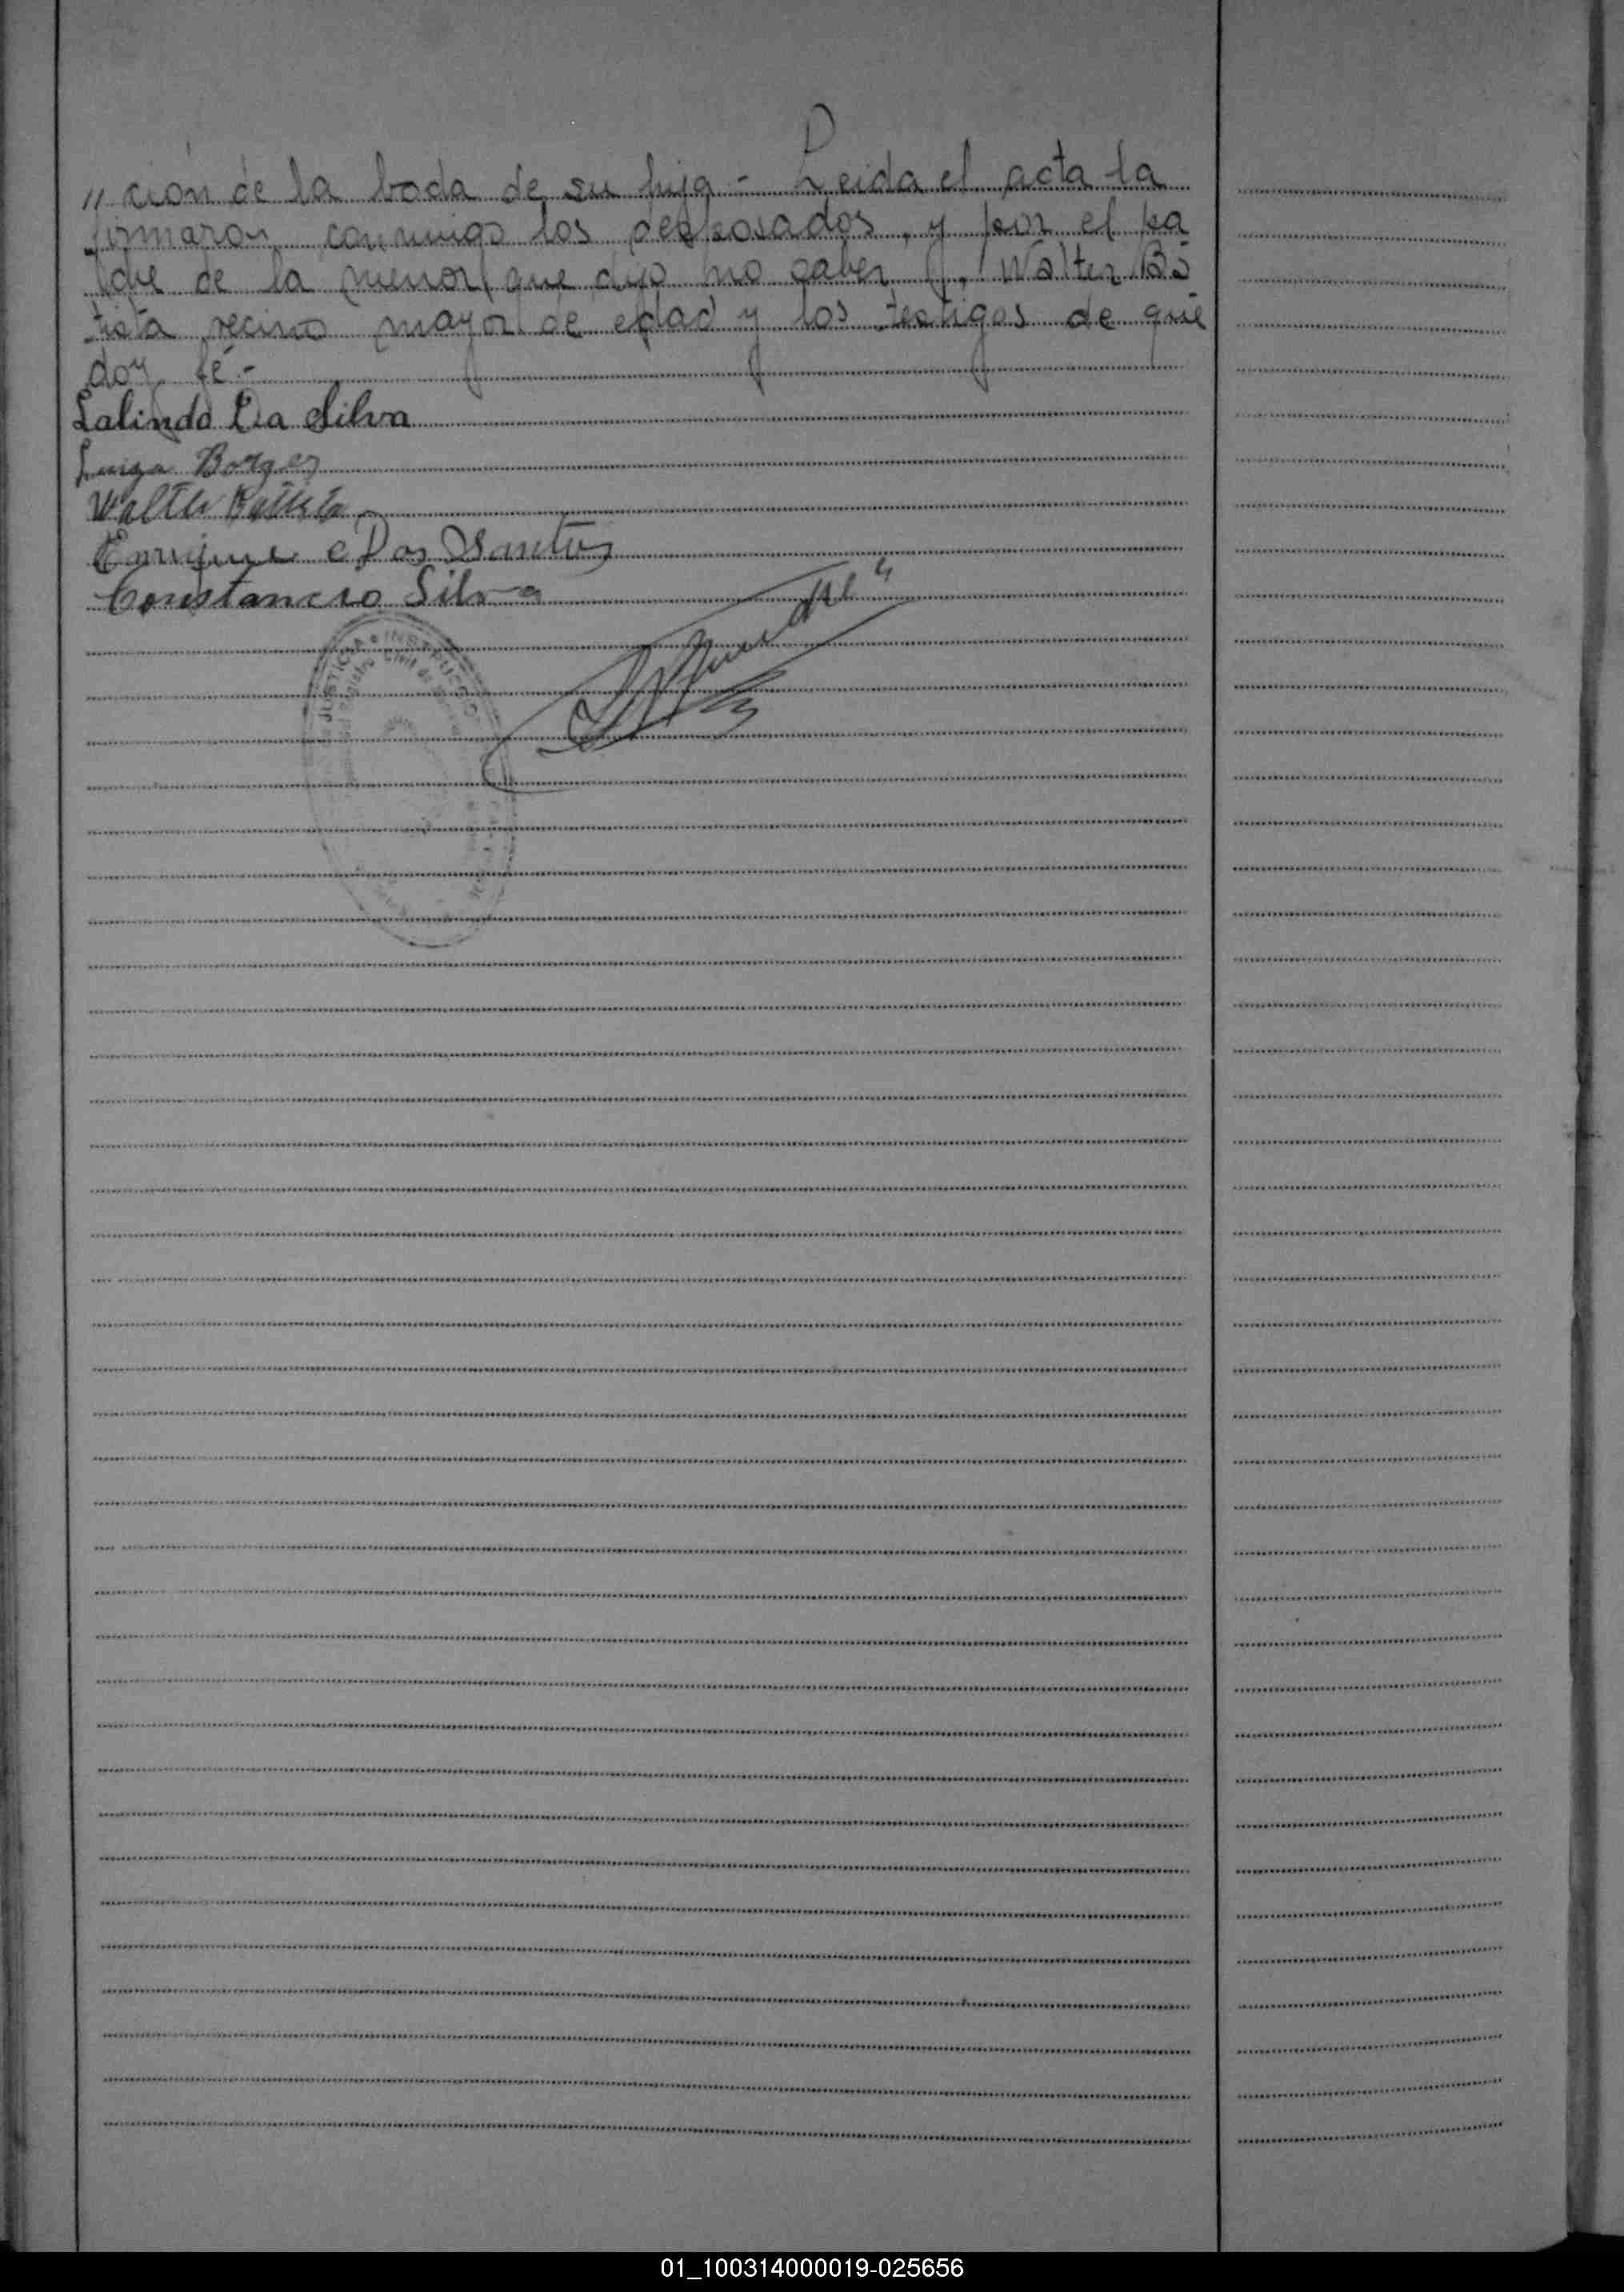 "ción de la boda de su hija - Leida el acta la
firmaron conmigo los desposados, y por el pa
dre de la menor que dijo no saber f. Walter Ba
tista vecino mayor de edad y los testigos de que
doy fé.-
Lalindo Da Silva
Luiza Borges
Walter Batista
Enrique Dos Santos
Constancio Silva
JUSTICIA INSTRUCC
Registro Civil de
01_100314000019-025656